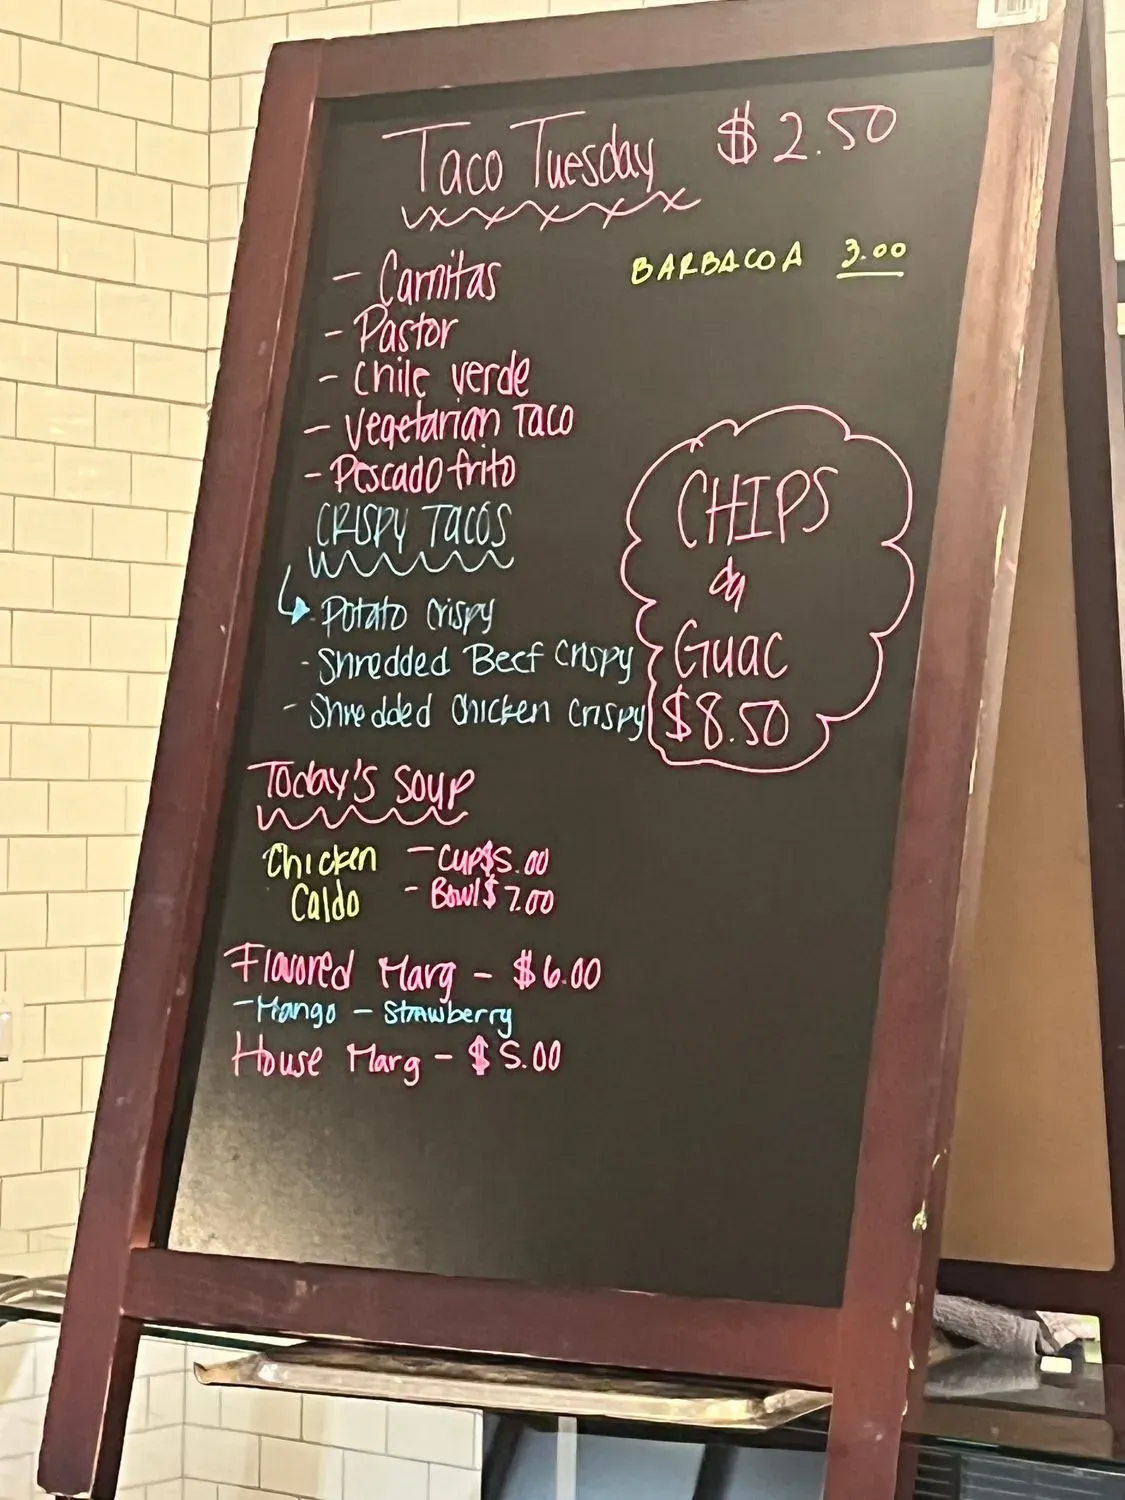 Taco Tuesday $2.50
BARBACOA 3.00
- Carnitas
- Pastor
- Chile verde
- Vegetarian Taco
- Pescado frito
CRISPY TACOS
- Potato Crispy
- Shredded Beef Crispy
- Shredded Chicken Crispy
CHIPS
&
Guac
$8.50
Today's Soup
Chicken - Cup $5.00
Caldo - Bowl $7.00
Flavored Marg - $6.00
- Mango - Strawberry
House Marg - $5.00